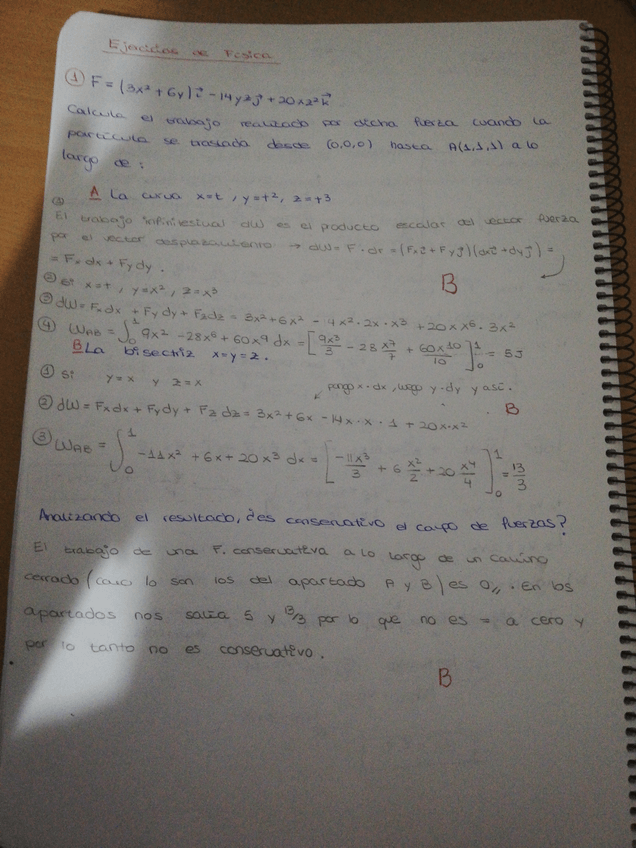 Ejercicios de Física
① F = (3x² + 6y) i⃗ - 14yz j⃗ + 20xz² k⃗
Calcula el trabajo realizado por dicha fuerza cuando la
partícula se traslada desde (0,0,0) hasta A(1,1,1) a lo
largo de:
A La curva x=t, y=t², z=t³
① El trabajo infinitesimal dW es el producto escalar del vector fuerza
por el vector desplazamiento → dW = F·dr = (Fx i⃗ + Fy j⃗)(dx i⃗ + dy j⃗) =
= Fx dx + Fy dy. B
② Si x=t, y=x², z=x³
③ dW = Fx dx + Fy dy + Fz dz = 3x² + 6x² - 4x²·2x·x³ + 20x x⁶·3x²
④ W_AB = ∫₀¹ 9x² - 28x⁶ + 60x⁹ dx = [9x³/3 - 28 x⁷/7 + 60x10/10]₀¹ = 5J
B La bisectriz x=y=z.
① Si y=x y z=x
pongo x·dx, luego y·dy y así.
② dW = Fx dx + Fy dy + Fz dz = 3x² + 6x - 14x·x·1 + 20x·x² B
③ W_AB = ∫₀¹ -11x² + 6x + 20x³ dx = [-11x³/3 + 6 x²/2 + 20 x⁴/4]₀¹ = 13/3
Analizando el resultado, ¿es conservativo el campo de fuerzas?
El trabajo de una F. conservativa a lo largo de un camino
cerrado (como lo son los del apartado A y B) es 0,,. En los
apartados nos salía 5 y 13/3 por lo que no es = a cero y
por lo tanto no es conservativo.
B